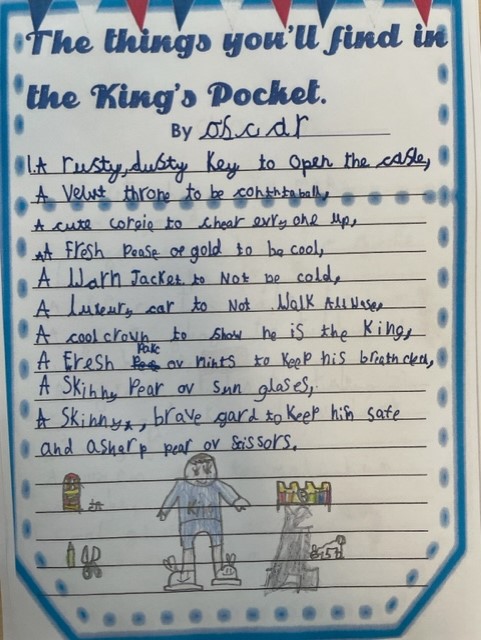 The things you'll find in
the King's Pocket.
By oscar
1.A rusty, dusty key to open the casle,
A velvt throne to be
A cute corgie to chear evry one up,
A fresh pease of gold to be cool,
A Warn Jacket to Not be cold,
A luxury car to Not Walk
A cool crown to show he is the King,
Pake
A Fresh ov mints to keep his breath
A Skinny Pear ov Sun glases,
A Skinny, brave gard to keep him safe
and a sharp pear ov scissors.